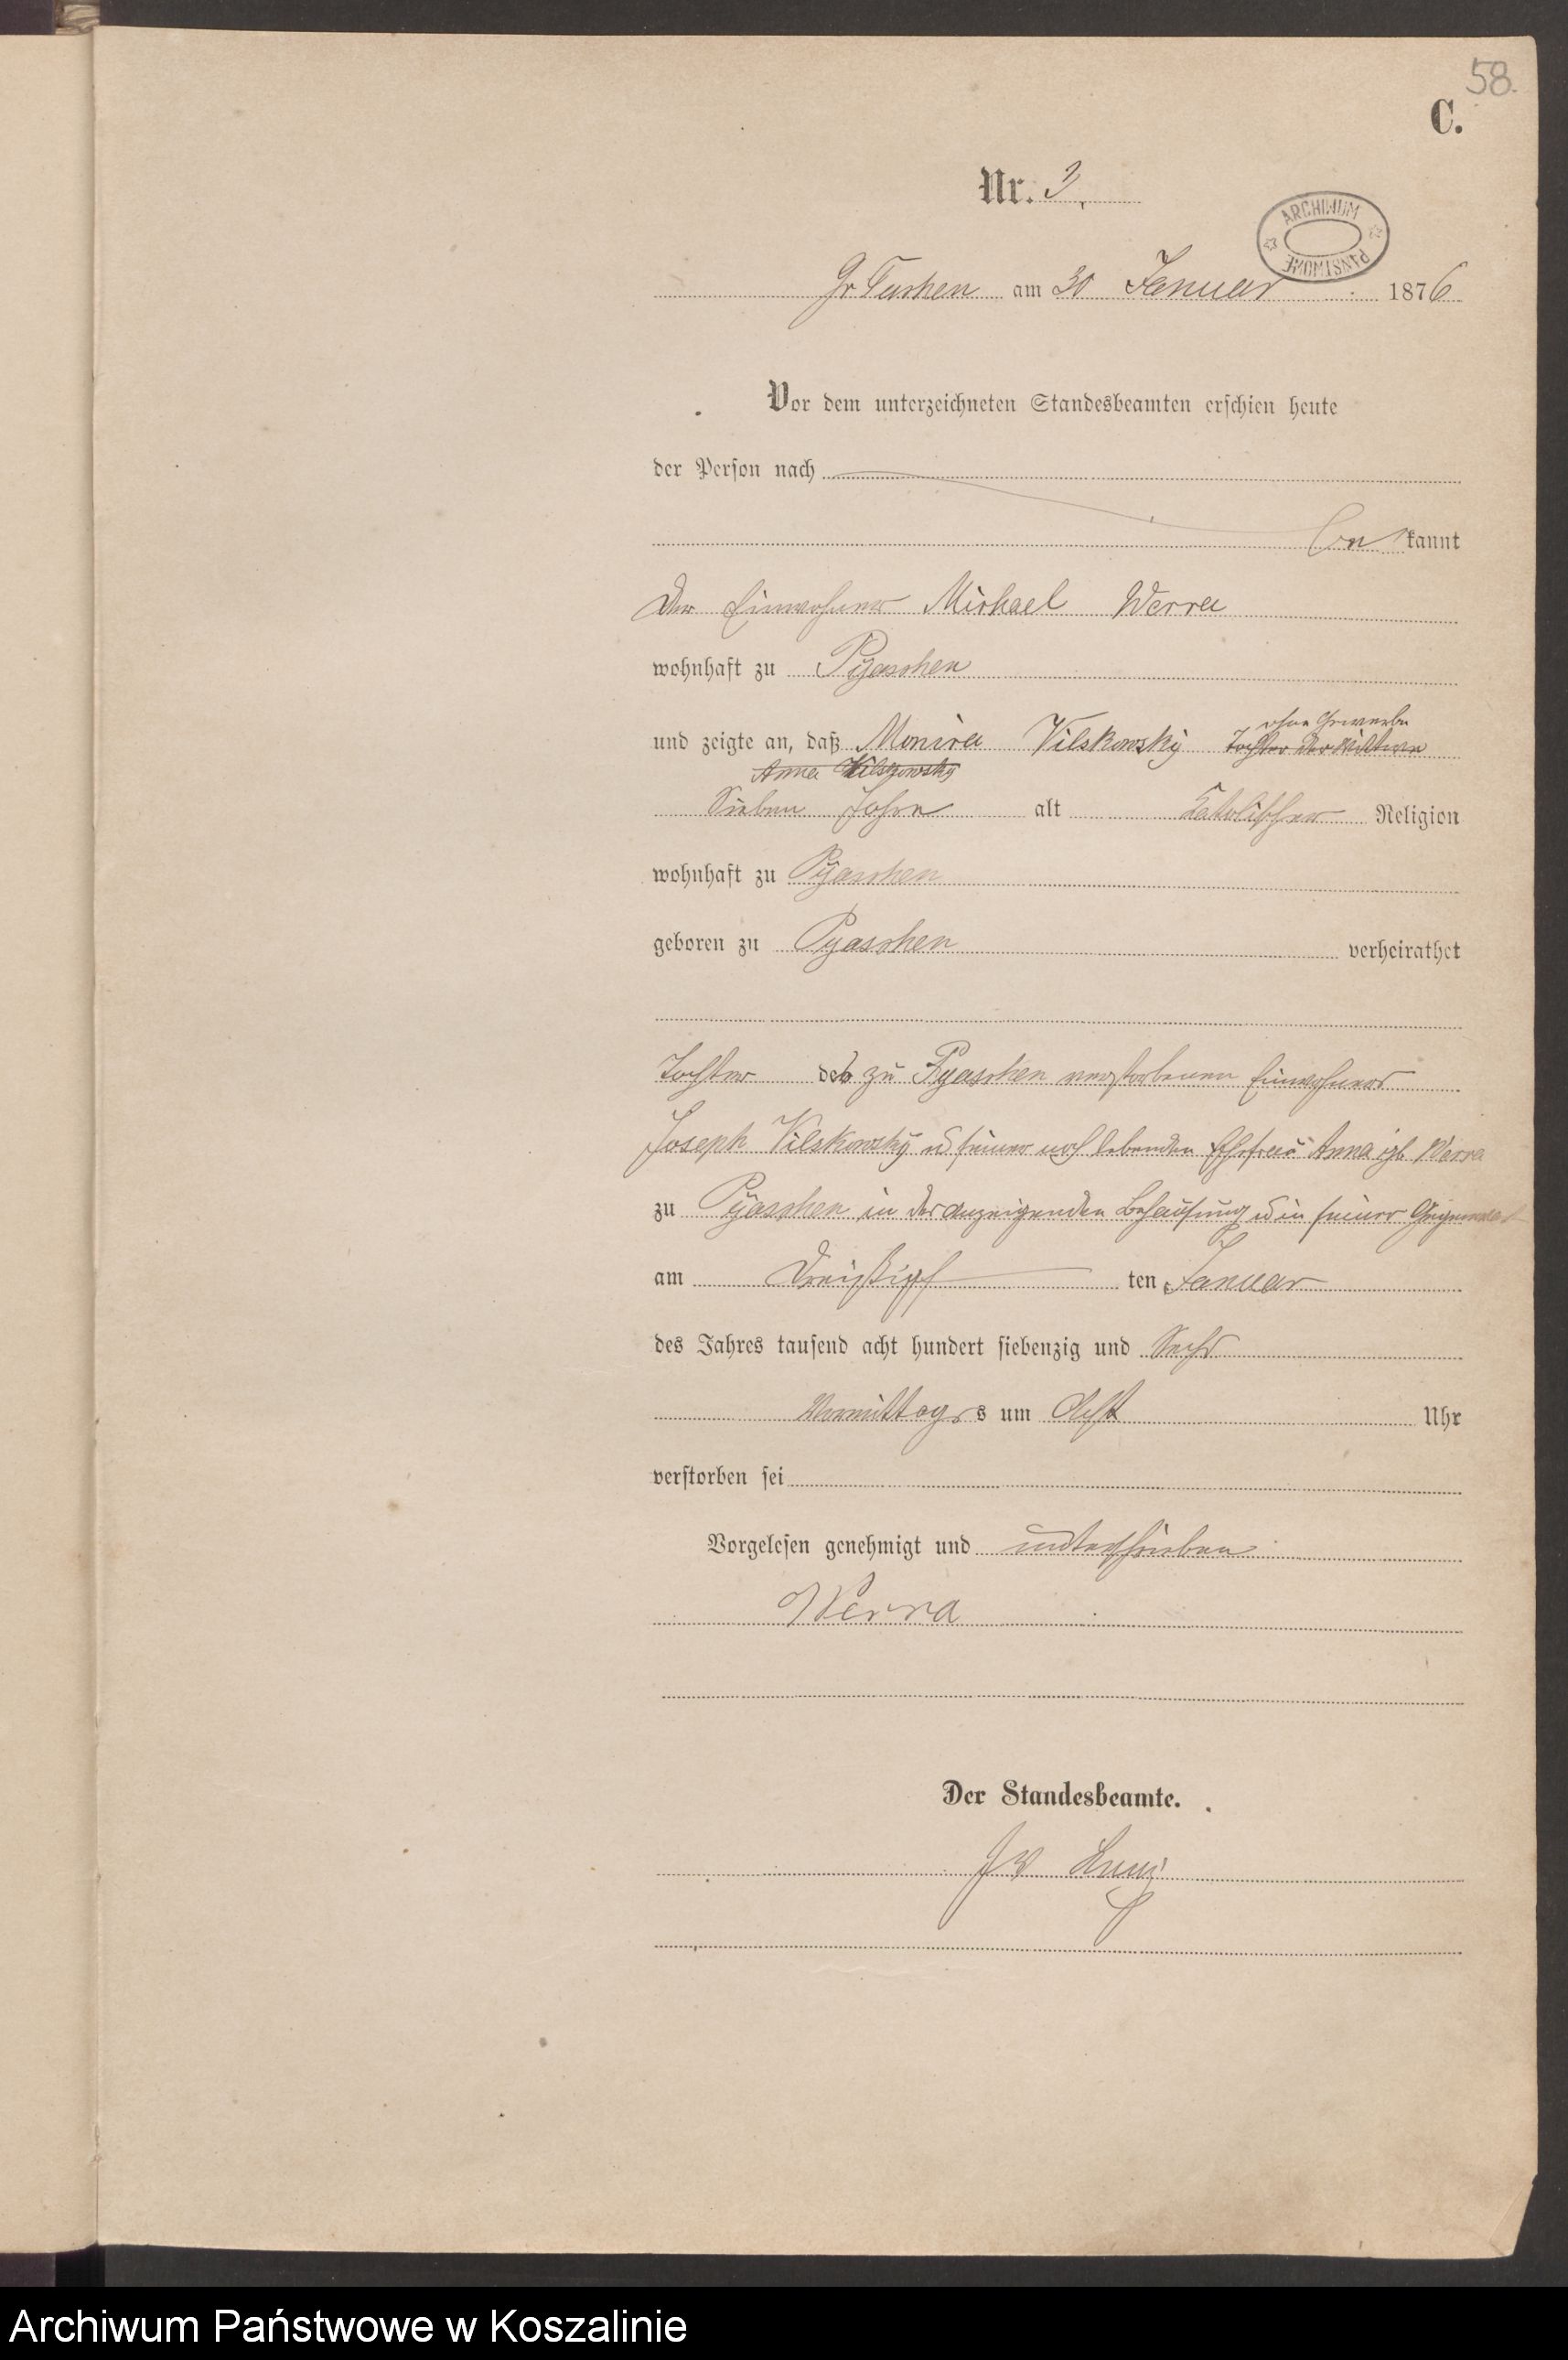 58.
C.
Nr. 3.
ARCHIWUM PAŃSTWOWE
Gr Tuchen am 30 Januar 1876
Vor dem unterzeichneten Standesbeamten erschien heute
der Person nach
be kannt
Der Einwohner Michael Werra
wohnhaft zu Pÿaschen
ohne Gewerbe
und zeigte an, daß Monica Vilskowskÿ Tochter der Wittwe
Anna Vilskowskÿ
Sieben Jahre alt katolischer Religion
wohnhaft zu Pÿaschen
geboren zu Pyaschen verheirathet
Tochter des zu Pyaschen verstorbenen Einwohners
Joseph Vilskowskÿ u seiner noch lebenden Ehefrau Anna gb Werra
zu Pÿaschen in der anzeigenden Behausung u in seiner Gegenwart
am Dreißigst ten Januar
des Jahres tausend acht hundert siebenzig und Sechs
Vormittags um Acht Uhr
verstorben sei
Vorgelesen genehmigt und unterschrieben
Werra
Der Standesbeamte.
Archiwum Państwowe w Koszalinie